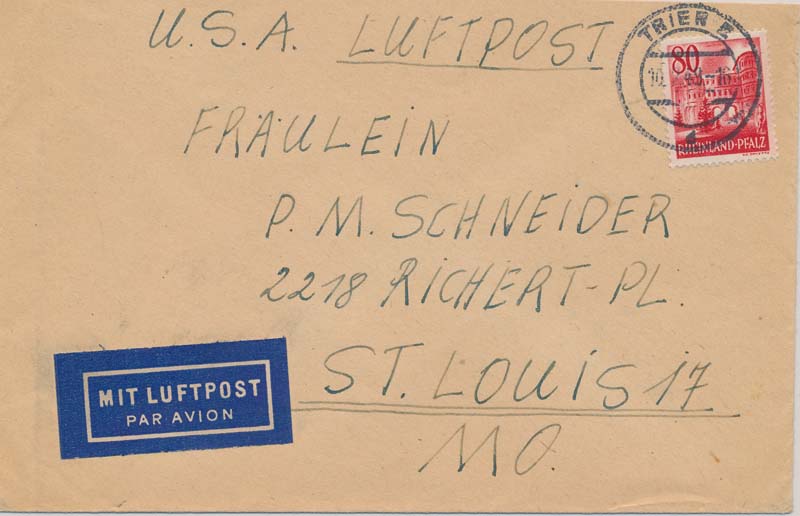 U.S.A. LUFTPOST
TRIER 2
80
RHEINLAND-PFALZ
FRÄULEIN
P. M. SCHNEIDER
2218 RICHERT-PL.
ST. LOUIS 17
MO.
MIT LUFTPOST
PAR AVION